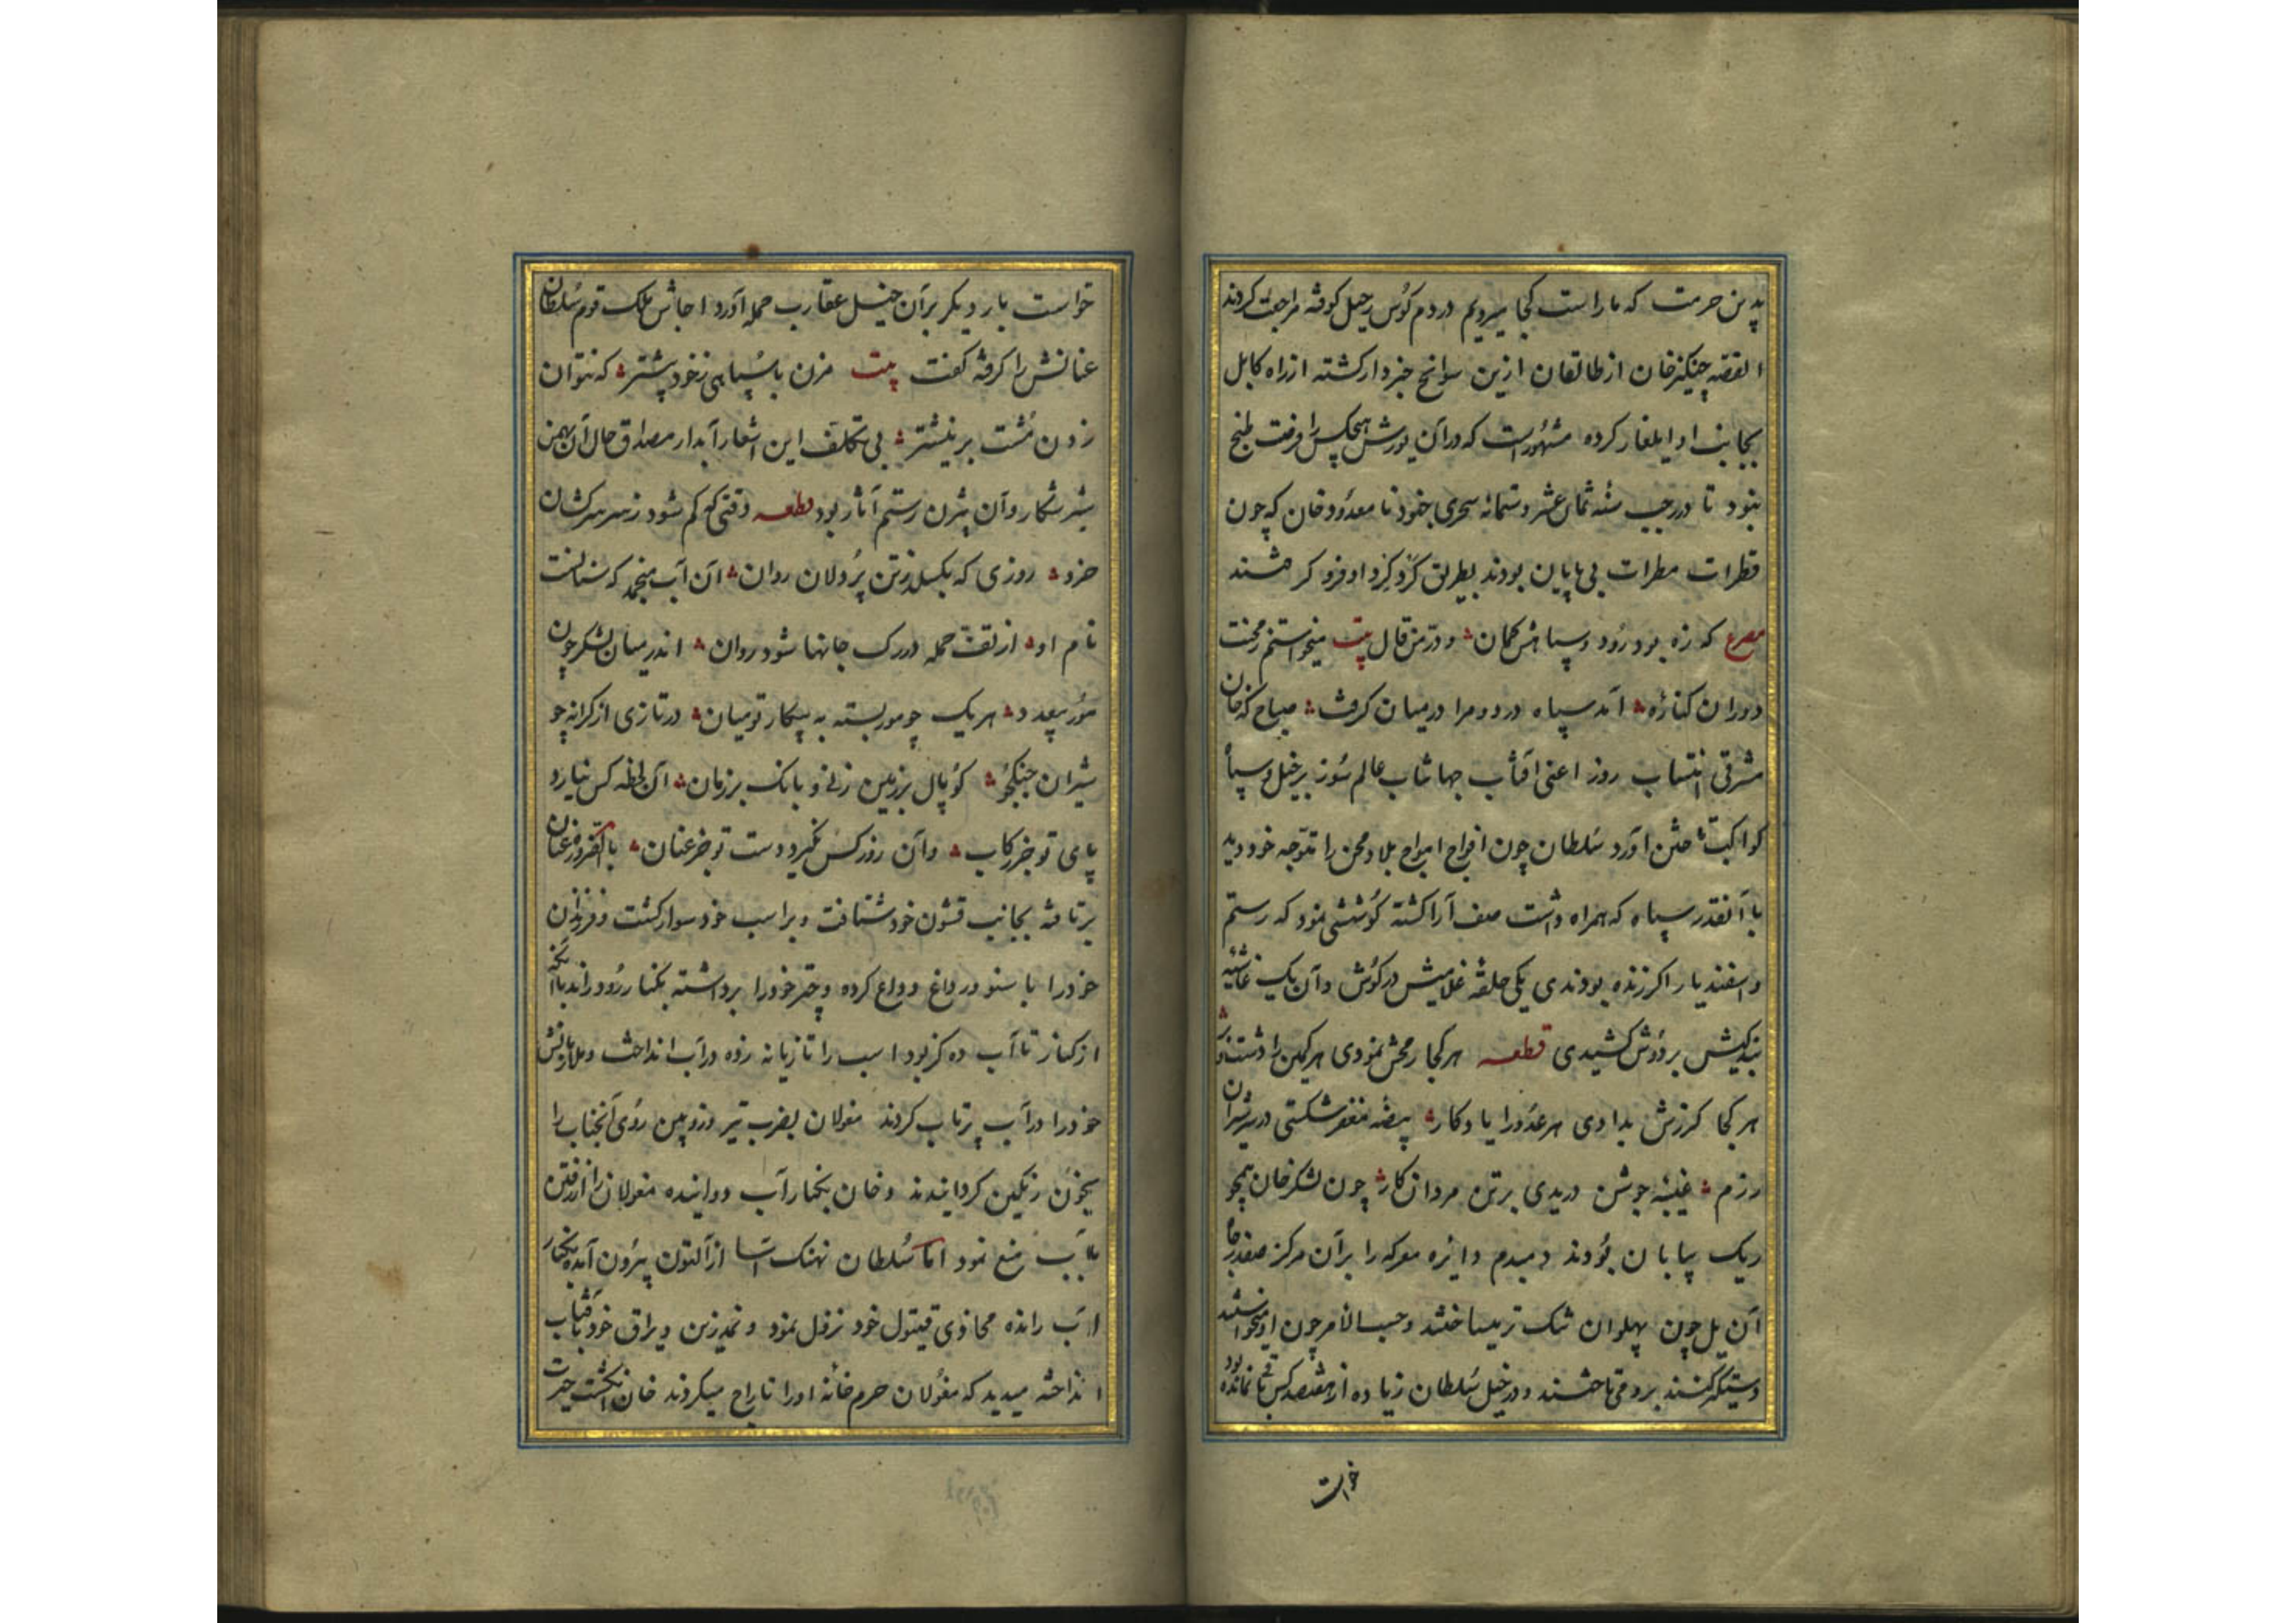 بدین حرمت که ما راست کجا میرویم در دم کوس رحیل کوفته مراجعت کردند
القصه چنکیزخان از طالقان ازین سوانح خبردار کشته از راه کابل
بجانب او ایلغار کرده مشهورست که در آن یورش هیچکس را فرصت طبخ
نبود تا در رجب سنه ثمان عشر و ستمائه سحری بخود نامعدود خان که چون
قطرات مطرات بی پایان بودند بطریق کرد کرد او فرو کرفتند
مصرع که زه بود رود و سپاهش کمان و در من قال بیت میخواستم ز محنت
دوران کناره آمد سپاه درد و مرا در میان کرفت صباح که خان
مشرقی انتساب روز اعنی آفتاب جهانتاب عالم سوز بر خیل و سپاه
کواکب تاختن آورد سلطان چون افواج امواج بلا و محن را متوجه خود دید
با آنقدر سپاه که همراه داشت صف آرا کشته کوششی نمود که رستم
و اسفندیار اکر زنده بودندی یکی حلقه غلامیش در کوش و آن یک غاشیه
بندکیش بر دوش کشیدی قطعه هر کجا رمحش نمودی هر کمین را دستبرد
هر کجا کرزش بدادی هر عدو را یادکار بیضه مغفر شکستی در سر شیران
رزم غیبه جوشن دریدی بر تن مردان کار چون لشکر خان همچو
ریک بیابان بودند دمبدم دایره معرکه را بر آن مرکز صفدر جا
آن یل چون پهلوان تنک تر میساختند و حسب الامر چون او میخواستند
دستکیر کنند بر وی تاختند و در خیل سلطان زیاده از هفتصد کس باقی نمانده بود
خواست
خواست بار دیکر بر آن خیل عقارب حمله آورد اجاش ملک قوم سلطان
عنانش را کرفته کفت بیت مزن با سپاهی ز خود بیشتر که نتوان
زدن مشت بر نیشتر بی تکلف این اشعار آبدار مصداق حال آن بهمن
شیر شکار و آن بیژن رستم آثار بود قطعه وقتی که کم شود ز سر سرکشان
خرد روزی که بکسلد ز تن پردلان روان آن آب منجمد که سنانست
نام او از تف حمله در رک جانها شود روان اندر میان لشکر چون
مور بیعدد هر یک چو مور بسته به پیکار تو میان در تازی از کرانه چو
شیران جنکجو کوپال بر زمین زنی و بانک بر زمان آن لحظه کس نیارد
پای تو جز رکاب وآن روز کس نکیرد دست تو جز عنان بالضروره عنان
برتافته بجانب قشون خود شتافت و بر اسب خود سوار کشت و فرزندان
خود را با سوز و داغ وداع کرده و چتر خود را برداشته بکنار رود راند با آنکه
از کنار تا آب ده کز بود اسب را تازیانه زده در آب انداخت و ملازمانش
خود را در آب پرتاب کردند مغولان بضرب تیر و زوبین روی آنجناب را
بخون رنکین کردانیدند و خان بکنار آب دوانیده مغولان را از رفتن
بآب منع نمود اما سلطان نهنک آسا از آلتون بیرون آمده بکنار
آب رانده محاذی قیتول خود نزول نمود و نمد زین و یراق خود بآفتاب
انداخته میدید که مغولان حرم خانه او را تاراج میکردند خان انکشت حیرت